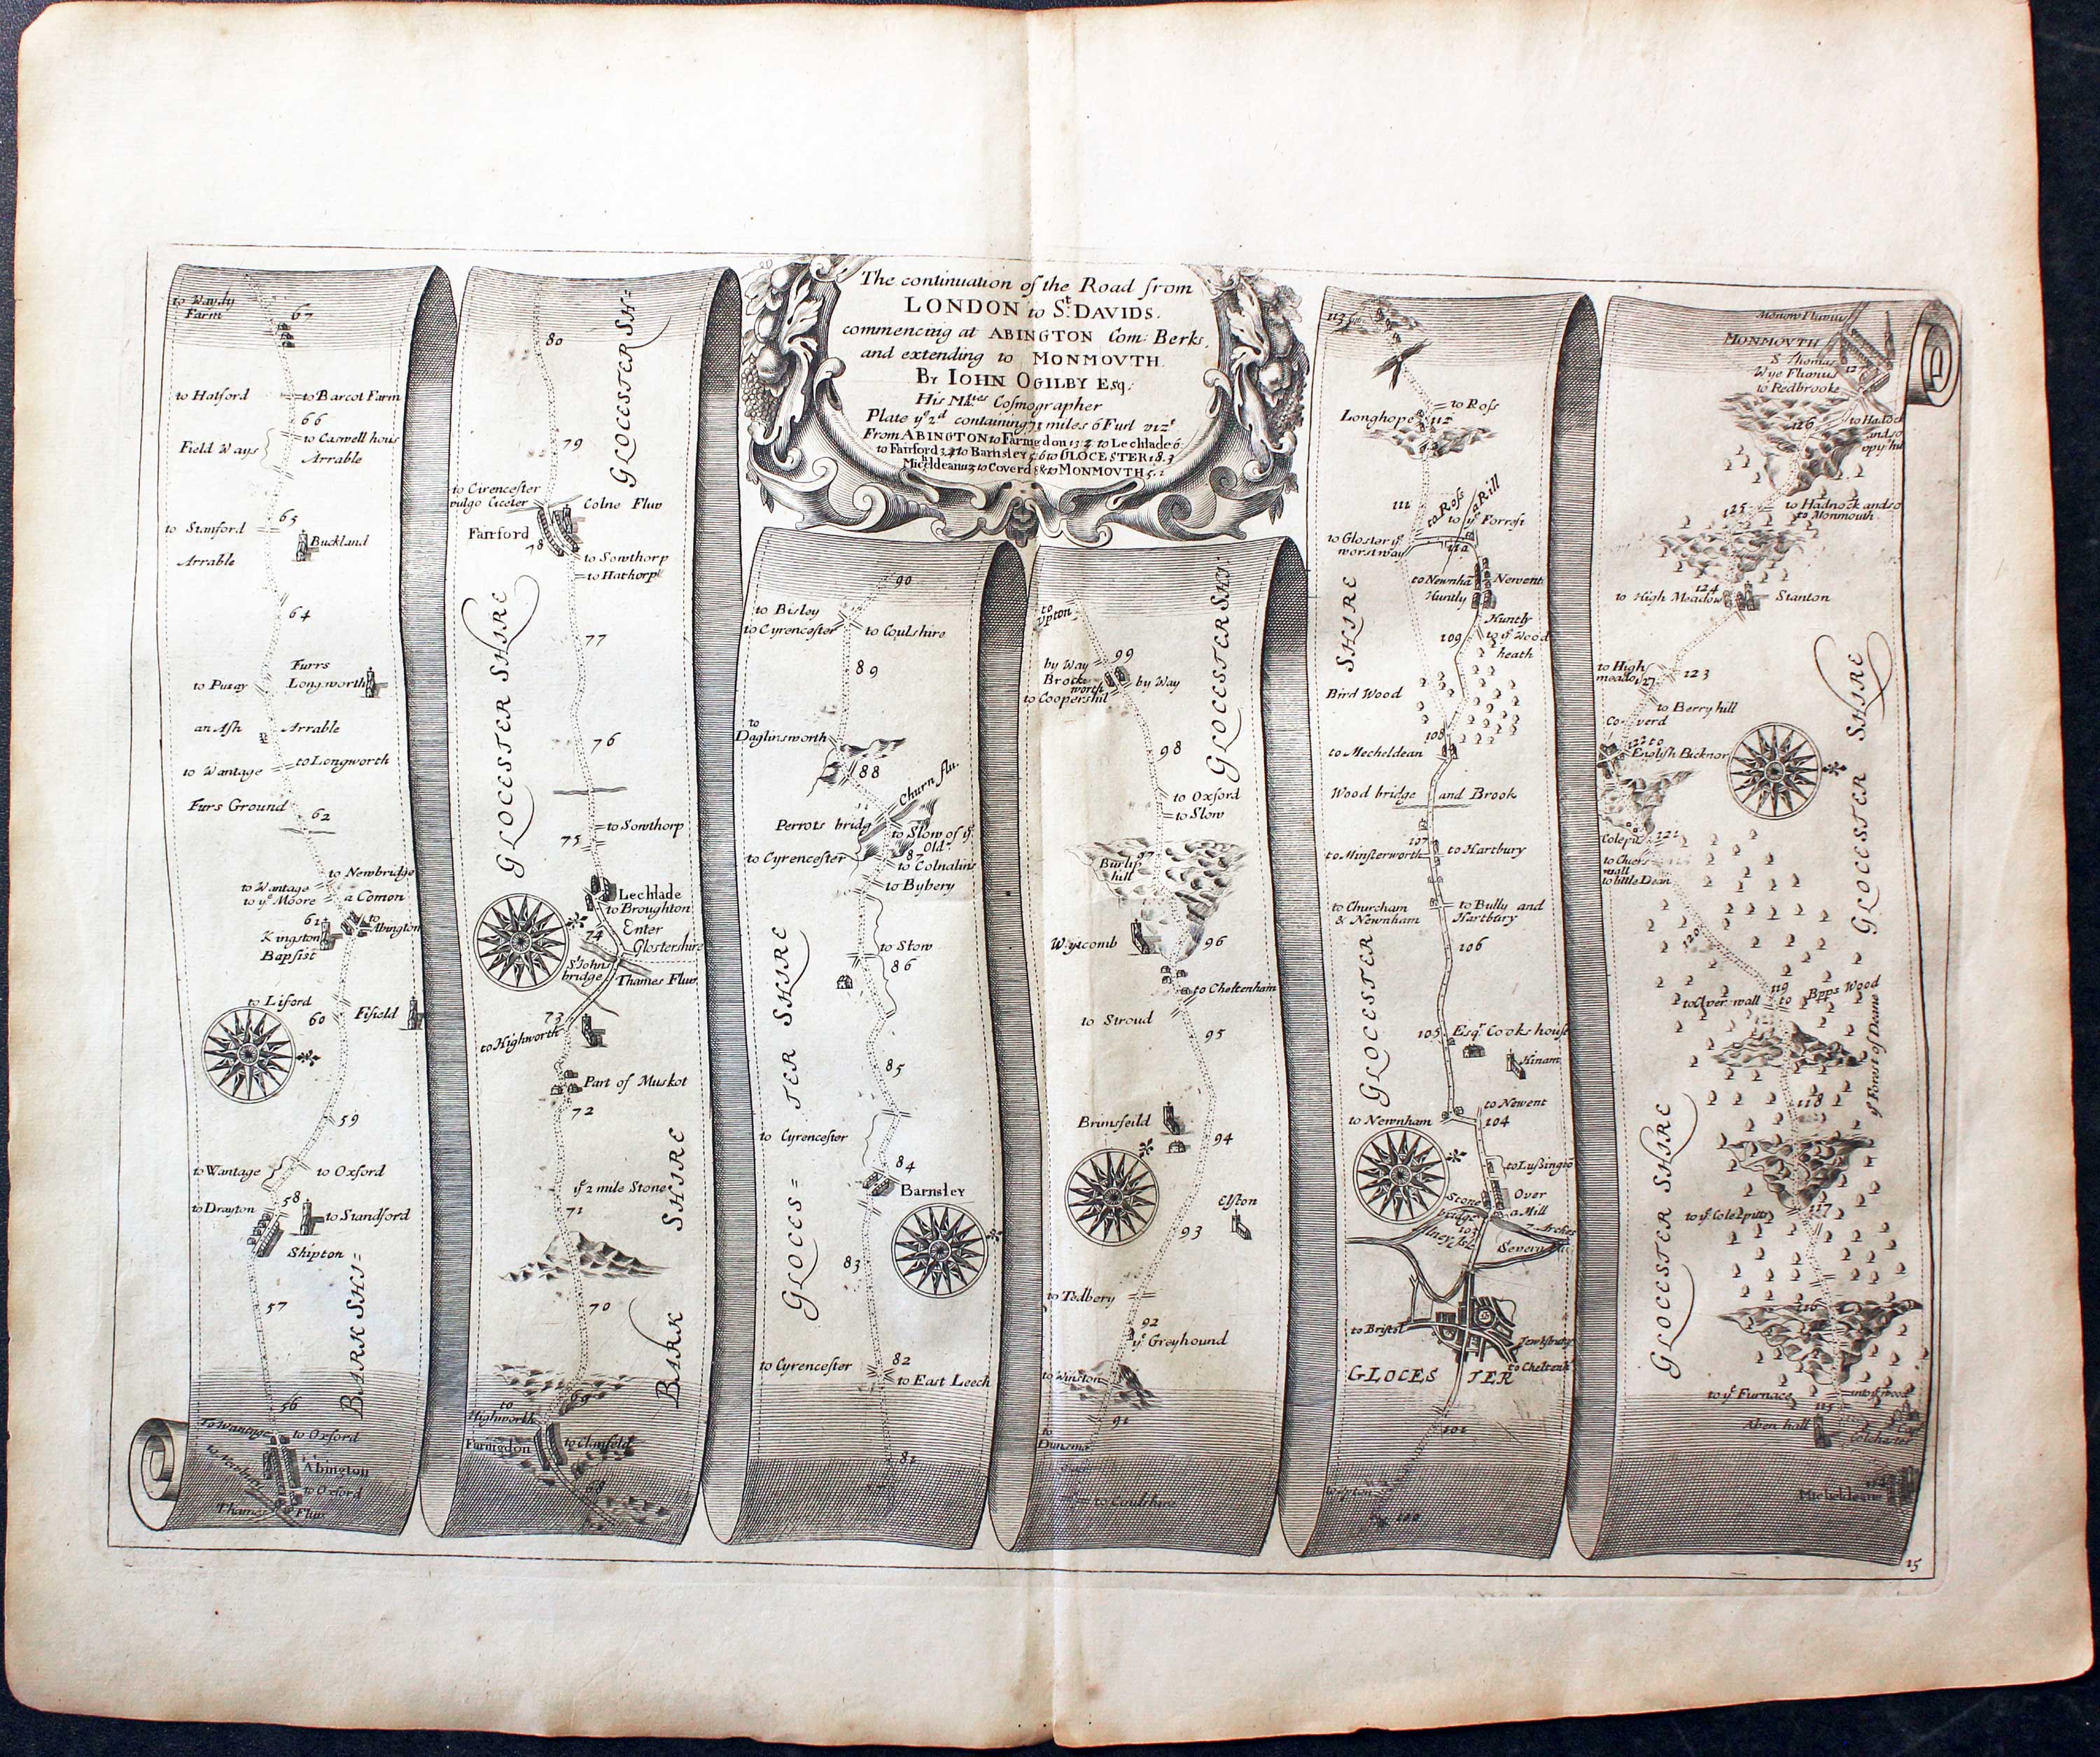 The continuation of the Road from
LONDON to St. DAVIDS.
commencing at ABINGTON Com: Berks,
and extending to MONMOVTH.
By IOHN OGILBY Esq;
His Maties Cosmographer
Plate ye 2d containing 71 miles 6 Furl vizt
From ABINGTON to Faringdon 13'2 to Lechlade 6
to Fairford to Barnsley 5'6 to GLOCESTER 18.3
to Coverd & to MONMOVTH 5.2
to Waydy
Farm
67
to Hatford
to Barcot Farm
66
to Caswell hous
Field Ways
Arrable
65
to Stanford
Buckland
Arrable
64
Furrs
to Pusay
Longworth
an Ash
Arrable
to Wantage
to Longworth
Furs Ground
62
to Newbridge
to Wantage
to ye Moore
a Comon
61
to
Abington
Kingston
Bapsist
to Liford
60
Fifield
59
to Wantage
to Oxford
58
to Drayton
to Standford
Shipton
57
BARK SHI=
56
To Wantage
to Oxford
to Newbury
Abington
to Oxford
Thames
Fluv
80
GLOCESTER SH=
79
to Cirencester
vulgo Ciceter
Colne Fluv
Fairford
78
to Sowthorp
to Hathorp
GLOCESTER SHIRE
77
76
75
to Sowthorp
Lechlade
to Broughton
Enter
Glostershire
74
St Johns
bridge
Thames Fluv.
73
to Highworth
Part of Muskot
72
ye 2 mile Stone
71
70
BARK SHIRE
69
to
Highworth
Faringdon
to Clanfeld
68
90
to Bisley
to Cyrencester
to Coulshire
89
to
Daglinsworth
88
Churn flu.
Perrots bridg
to Stow of ye
Old
87
to Cyrencester
to Colnalins
to Bybery
to Stow
86
85
to Cyrencester
84
Barnsley
GLOCES=TER SHIRE
83
82
to Cyrencester
to East Leech
81
to
Upton
99
by Way
Brock
worth
by Way
to Coopershil
98
GLOCESTER SHI.
to Oxford
to Stow
97
Burlip
hill
Wytcomb
96
to Cheltenham
to Stroud
95
Brimsfeild
94
Elston
93
to Tedbery
92
ye Greyhound
to Winston
91
to
to Coulshire
113
Longhope
to Ross
112
111
to Ross
a Rill
to ye Forrest
to Gloster ye
worst way
110
to Newnha
Newent
Huntly
Huntly
109
to ye Wood
heath
Bird Wood
SHIRE
108
to Mecheldean
Wood bridge
and Brook
107
to Minsterworth
to Hartbury
to Churcham
& Newnham
to Bully and
Hartbury
106
GLOCESTER
105
Esqr Cooks house
Hinam
to Newent
to Newnham
104
to Lassingto
Stone
bridge
Over
a Mill
103
7 Arches
Severn flu
to Bristol
Tewksbury
to Chelten
GLOCESTER
101
100
Monow Fluvius
MONMOVTH
S. Thomas
Wye Fluvius
127
to Redbrooke
126
to Hadock
and so
125
to Hadnock and so
to Monmouth
124
to High Meadow
Stanton
to High
meadow
123
to Berry hill
Coverd
122
to
English Bicknor
GLOCESTER SHIRE
Colepit
121
to little Dean
120
119
to
Bpps Wood
ye Forest of Deane
118
to ye Colepitts
117
GLOCESTER SHIRE
116
to ye Furnace
into ye wood
115
Aben hall
114
Micheldeane
15